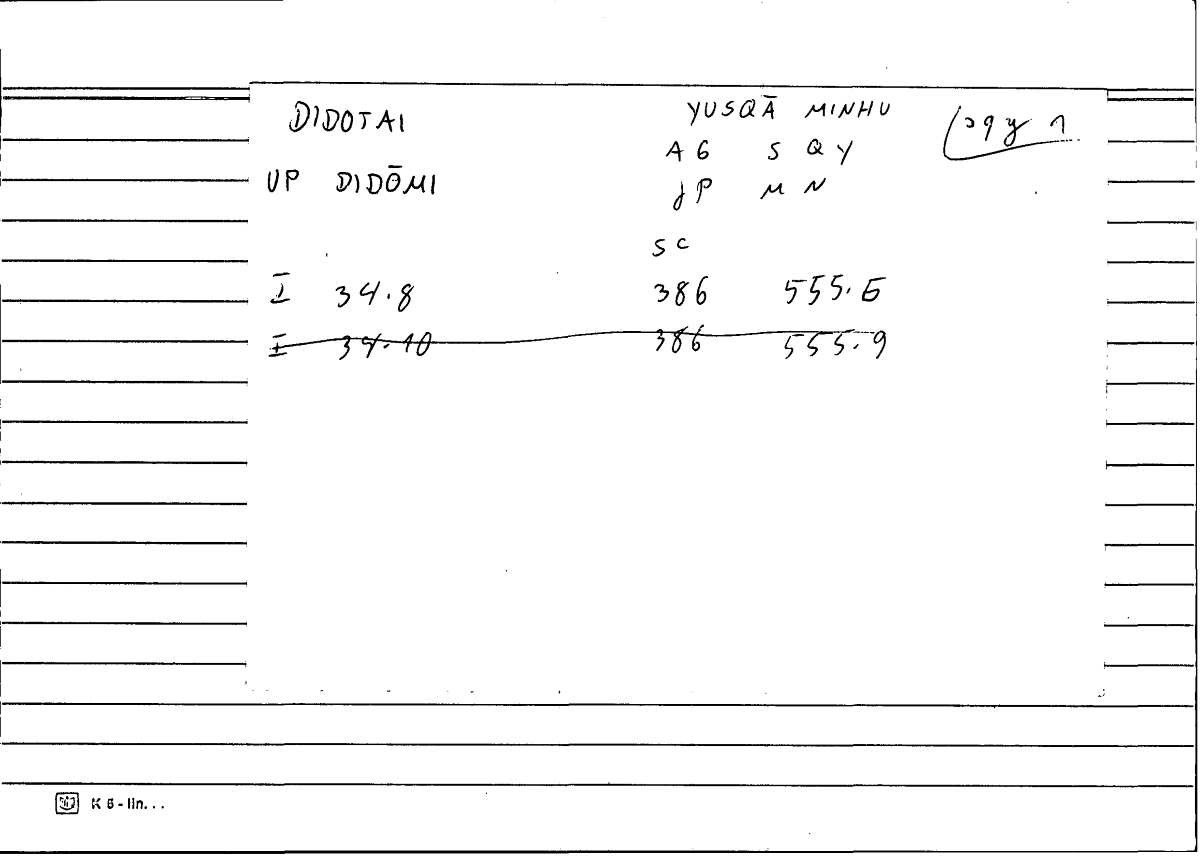 DIDOTAI YUSQĀ MINHU
AG S QY
UP DIDŌMI JP M N
SC
I 34.8 386 555.6
I 34.10 386 555.9
K 6 - lin...